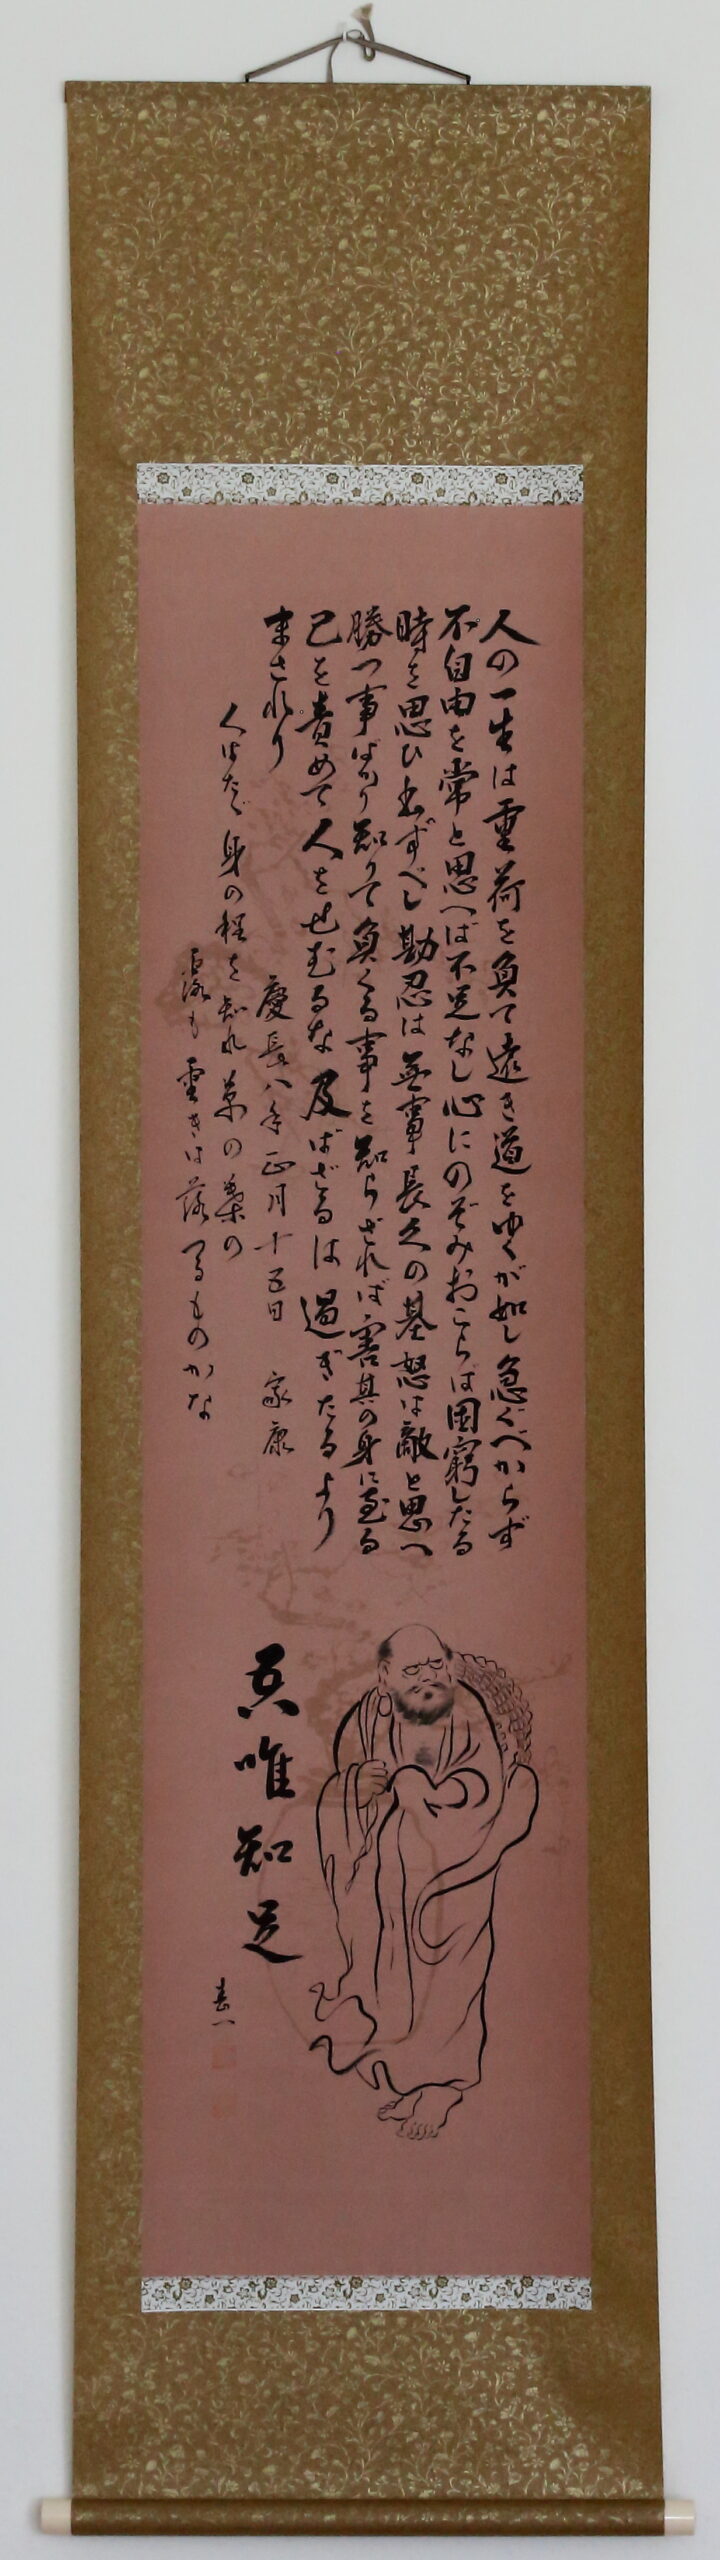 人の一生は重荷を負て遠き道をゆくが如し急ぐべからず
不自由を常と思へば不足なし心にのぞみおこらば困窮したる
時を思ひ出ずべし勘忍は無事長久の基怒は敵と思へ
勝つ事ばかり知りて負くる事を知らざれば害其の身に至る
己を責めて人をせむるな及ばざるは過ぎたるより
まされり
慶長八年正月十五日 家康
人はたゞ身の程を知れ草の葉の
露も重きは落つるものかな
吾唯知足